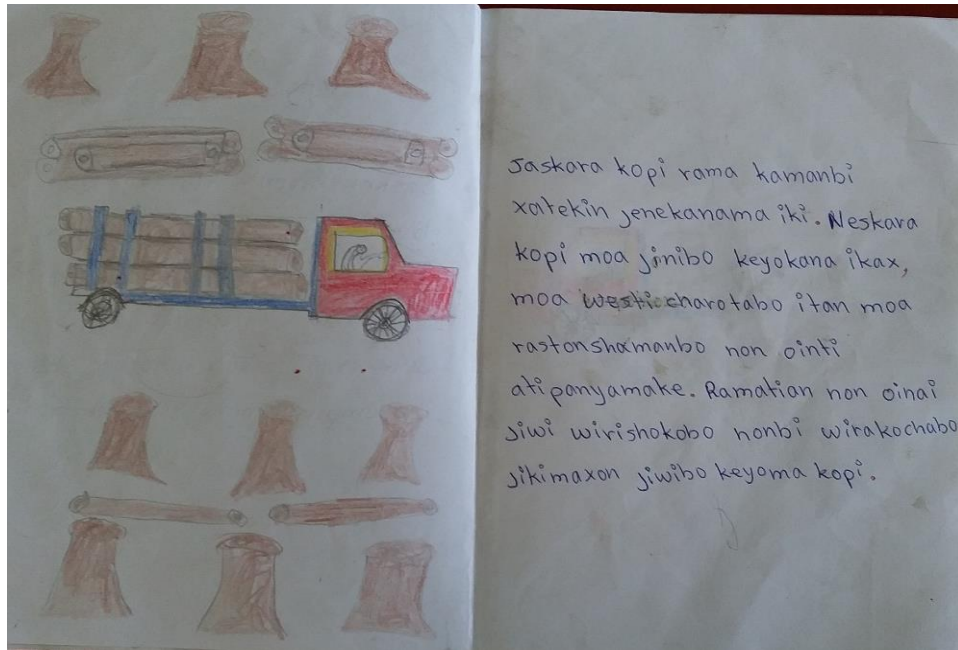 Jaskara kopi rama kamanbi
xatekin jenekanama iki. Neskara
kopi moa jinibo keyokana ikax,
moa westiocharotabo itan moa
rastonshamanbo non ointi
atipanyamake. Ramatian non oinai
jiwi wirishokobo nonbi wirakochabo
jikimaxon jiwibo keyoma kopi.